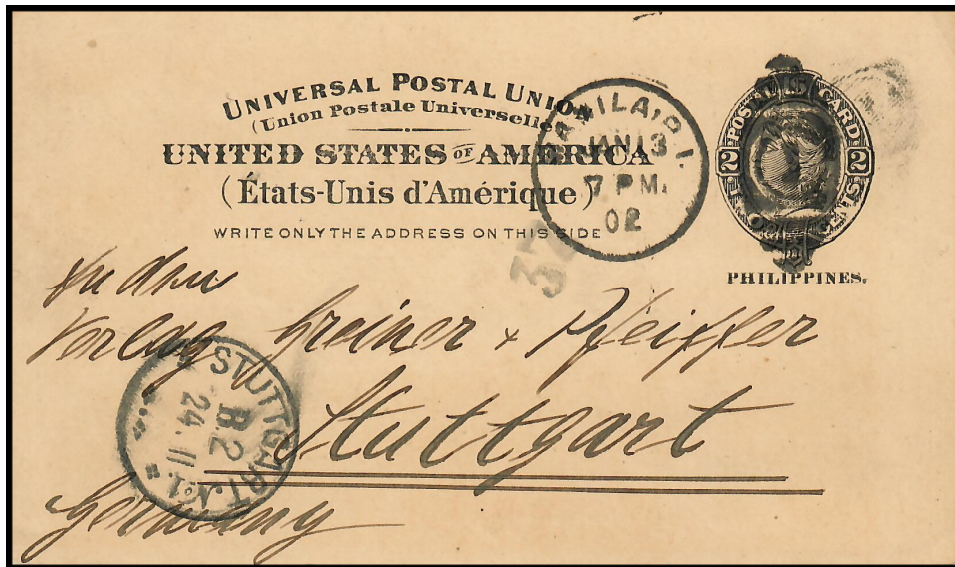 UNIVERSAL POSTAL UNION
(Union Postale Universelle)
UNITED STATES OF AMERICA
(États-Unis d'Amérique)
WRITE ONLY THE ADDRESS ON THIS SIDE
MANILA, P. I.
JAN 13
7 PM.
02
POSTAL CARD
2 2
CENTS.
PHILIPPINES.
37
An den
Verlag Greiner & Pfeiffer
Stuttgart
Germany
STUTTGART. No 1.
B.2
24. II.